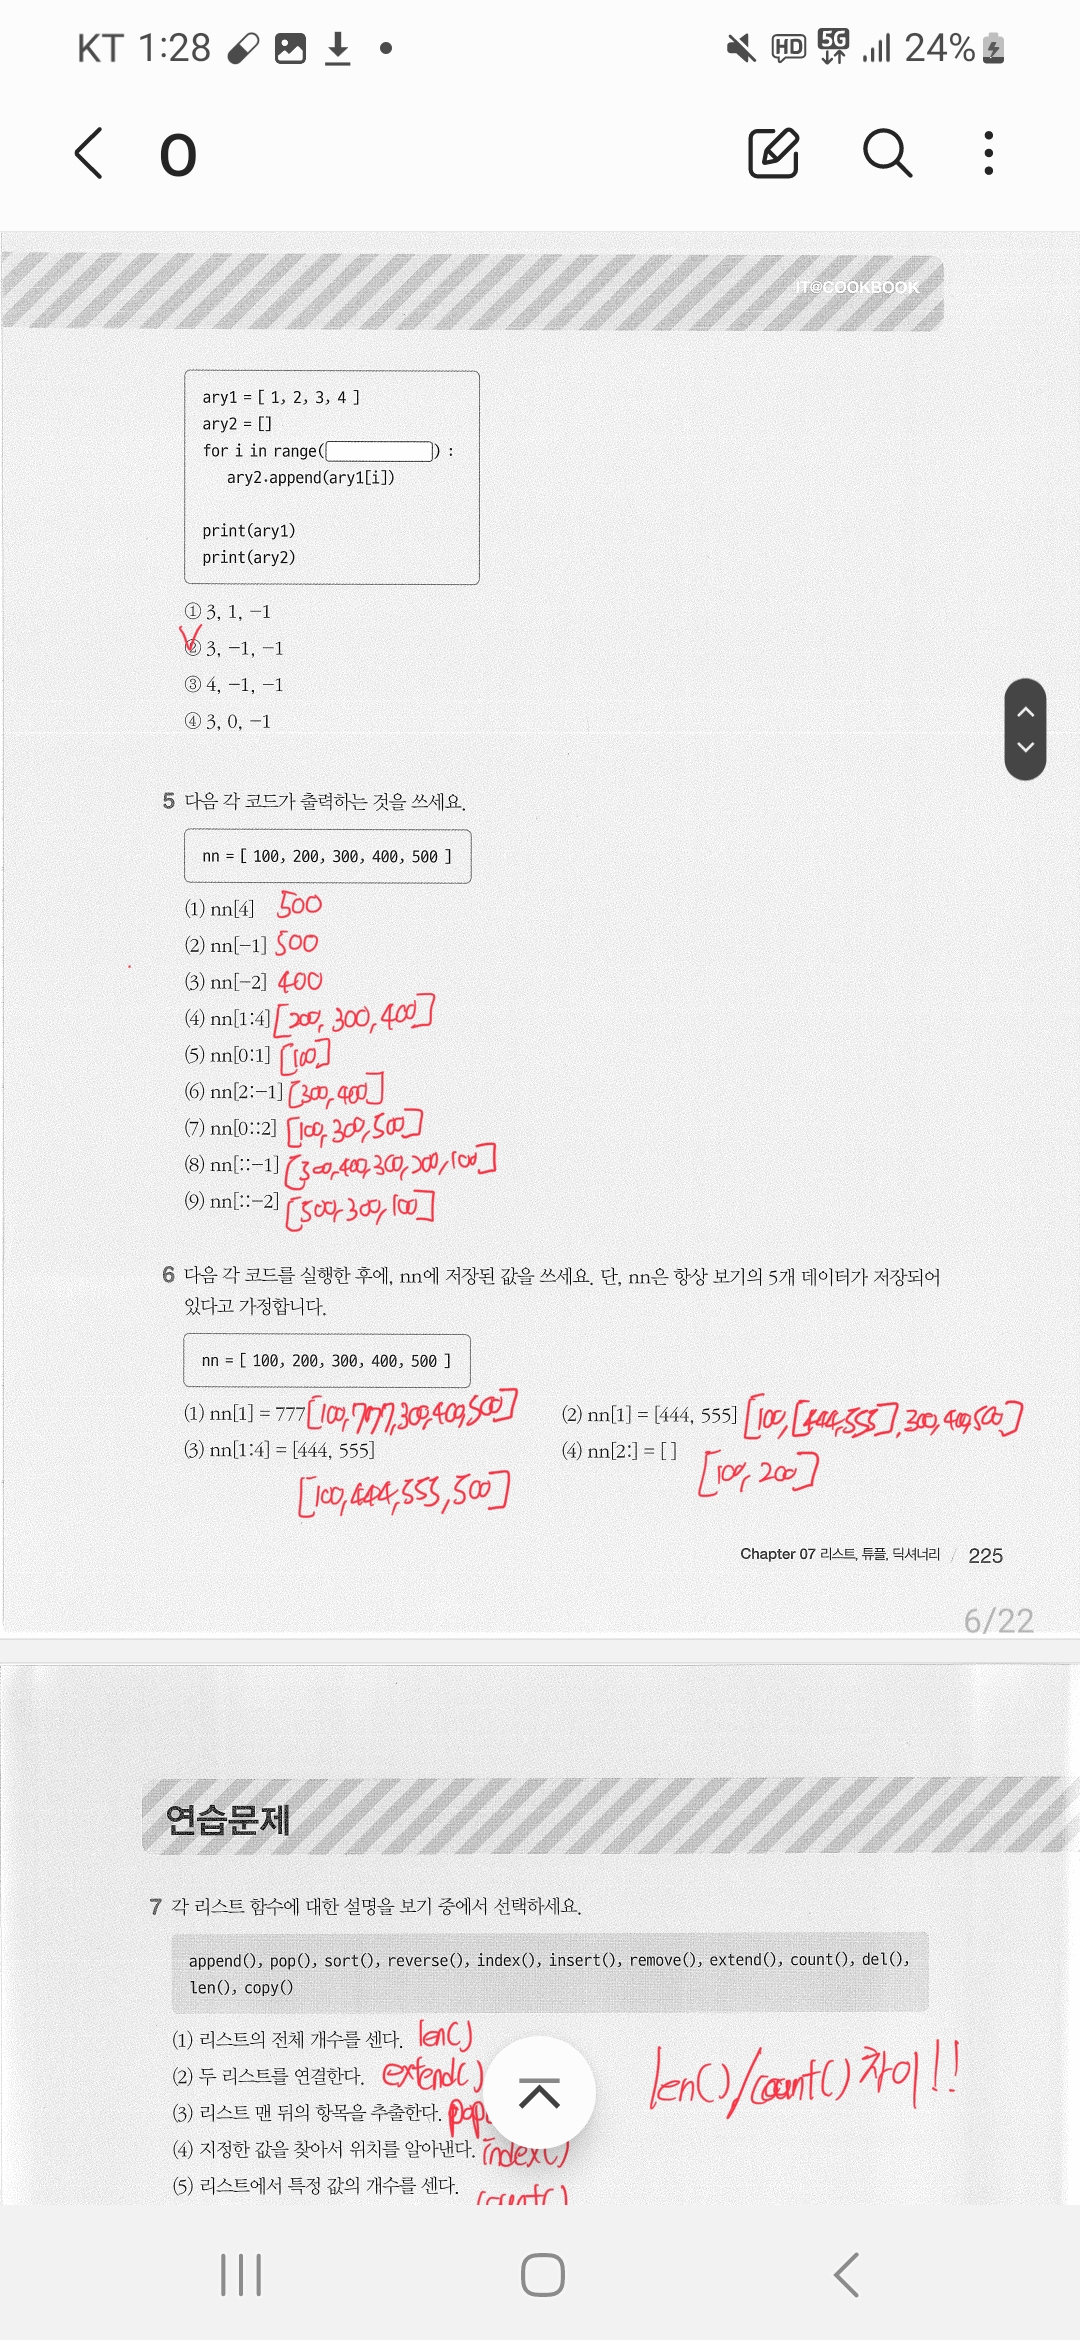 KT 1:28 HD 5G 24%
O
IT@COOKBOOK
ary1 = [ 1, 2, 3, 4 ]
ary2 = []
for i in range( ) :
ary2.append(ary1[i])
print(ary1)
print(ary2)
① 3, 1, −1
② 3, −1, −1
③ 4, −1, −1
④ 3, 0, −1
5 다음 각 코드가 출력하는 것을 쓰세요.
nn = [ 100, 200, 300, 400, 500 ]
(1) nn[4] 500
(2) nn[−1] 500
(3) nn[−2] 400
(4) nn[1:4] [200, 300, 400]
(5) nn[0:1] [100]
(6) nn[2:−1] [300, 400]
(7) nn[0::2] [100, 300, 500]
(8) nn[::−1] [500, 400, 300, 200, 100]
(9) nn[::−2] [500, 300, 100]
6 다음 각 코드를 실행한 후에, nn에 저장된 값을 쓰세요. 단, nn은 항상 보기의 5개 데이터가 저장되어
있다고 가정합니다.
nn = [ 100, 200, 300, 400, 500 ]
(1) nn[1] = 777 [100, 777, 300, 400, 500] (2) nn[1] = [444, 555] [100, [444, 555], 300, 400, 500]
(3) nn[1:4] = [444, 555] (4) nn[2:] = [ ] [100, 200]
[100, 444, 555, 500]
Chapter 07 리스트, 튜플, 딕셔너리 / 225
6/22
연습문제
7 각 리스트 함수에 대한 설명을 보기 중에서 선택하세요.
append(), pop(), sort(), reverse(), index(), insert(), remove(), extend(), count(), del(),
len(), copy()
(1) 리스트의 전체 개수를 센다. len()
(2) 두 리스트를 연결한다. extend() len()/count() 차이!!
(3) 리스트 맨 뒤의 항목을 추출한다. pop
(4) 지정한 값을 찾아서 위치를 알아낸다. index()
(5) 리스트에서 특정 값의 개수를 센다. count()